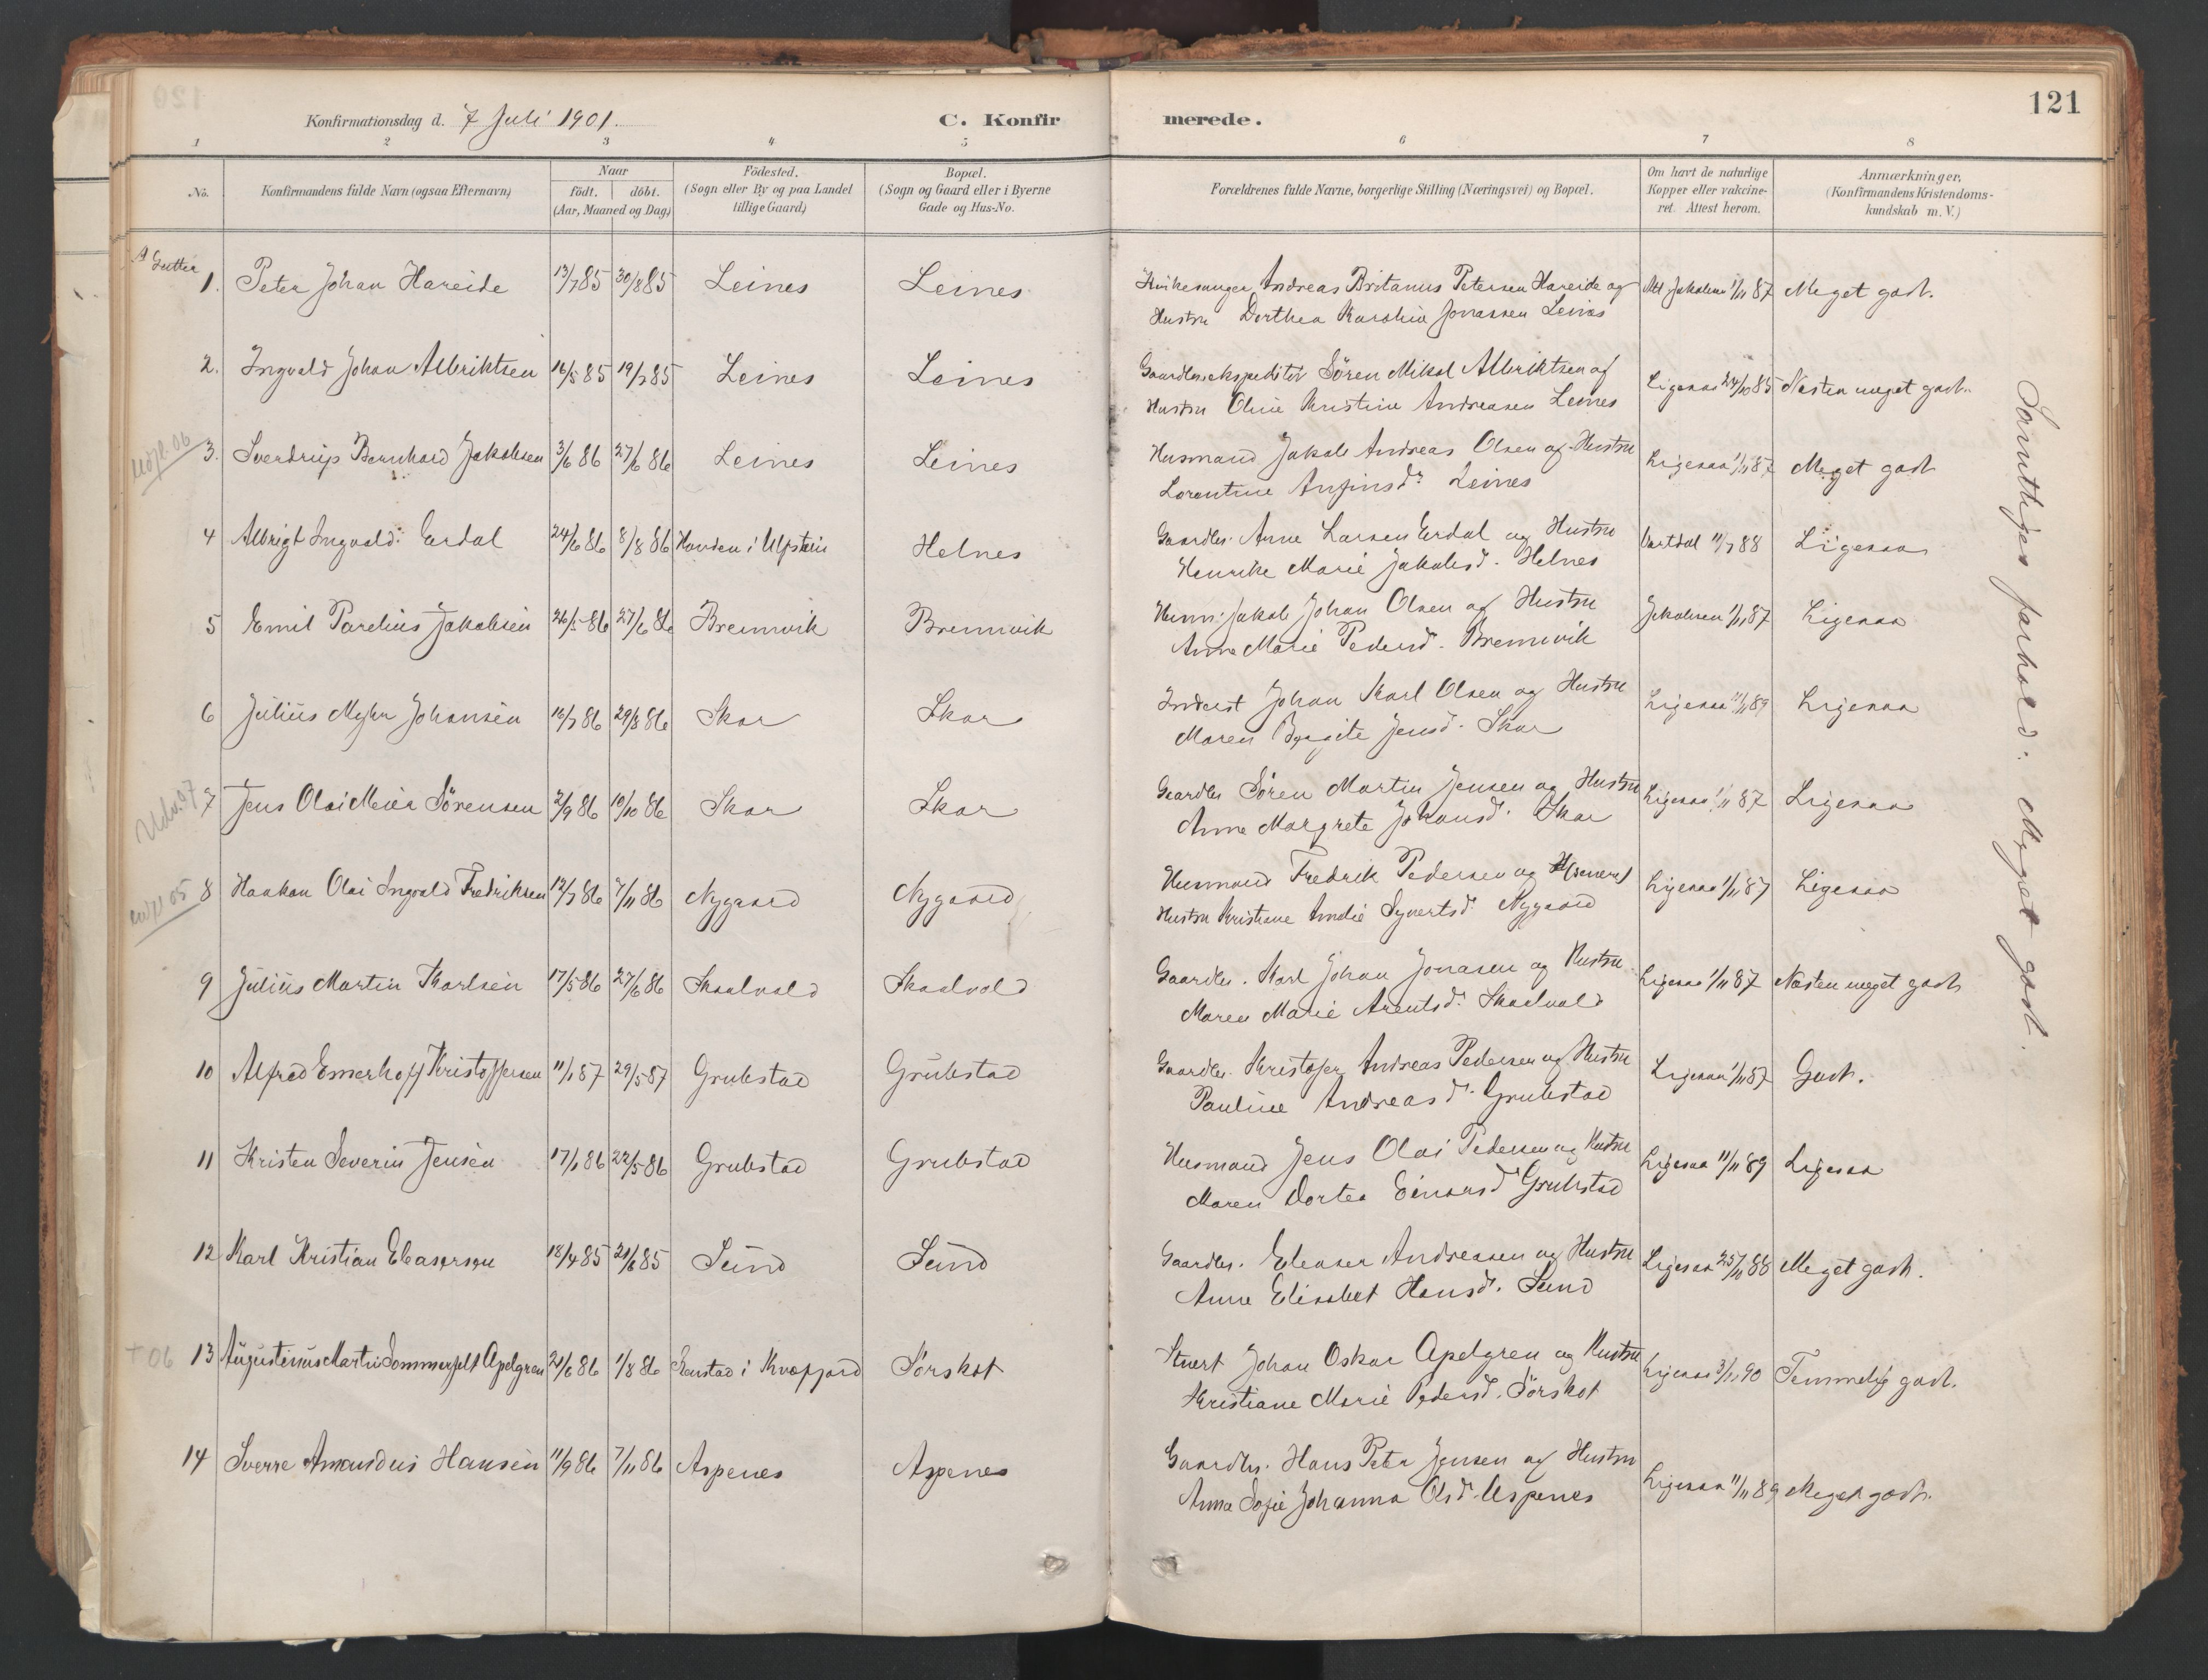 121
Konfirmationsdag d. 7 Juli 1901.
C. Konfirmerede.
1 2 3 4 5 6 7 8
No.
Konfirmandens fulde Navn (ogsaa Efternavn)
Naar
født. døbt.
(Aar, Maaned og Dag)
Födested.
(Sogn eller By og paa Landet
tillige Gaard)
Bopæl.
(Sogn og Gaard eller i Byerne
Gade og Hus-No.
Forældrenes fulde Navne, borgerlige Stilling (Næringsvei) og Bopæl.
Om havt de naturlige
Kopper eller vakcine-
ret. Attest herom.
Anmærkninger,
(Konfirmandens Kristendoms-
kundskab m. V.)
Gutter
1. Peter Johan Hareide 13/7 85 30/8 85 Leines Leines Andreas Britanus Petersen Hareide og Att. Jakobsen 1/11 87 Meget godt.
Hustru Dorthea Karolin Jonassen Leines
2. Ingvald Johan Albriktsen 16/5 85 19/7 85 Leines Leines Søren Mikal Albriktsen og Ligesaa 24/10 85 Næsten meget godt.
Hustru Oline Kristine Andreasen Leines
3. Sverdrup Bernhard Jakobsen 3/6 86 27/6 86 Leines Leines Husmand Jakob Andreas Olsen og Hustru Ligesaa 1/11 87 Meget godt
Lorentine Anfinsd. Leines
4 Albrigt Ingvald Erdal 24/6 86 8/8 86 Hovden i Ulfstein Helnes Gaardbr. Arne Larsen Erdal og Hustru Vartdal 11/7 88 Ligesaa
Henrike Marie Jakobsd. Helnes
5 Emil Parelius Jakobsen 26/5 86 27/6 86 Bremvik Bremvik Husm. Jakob Johan Olsen og Hustru Jakobsen 1/11 87 Ligesaa
Anne Marie Pedersd. Bremvik
6 Julius Myhr Johansen 16/7 86 29/8 86 Skar Skar Inderst Johan Karl Olsen og Hustru Ligesaa 11/11 89 Ligesaa
Maren Birgite Jensd. Skar
7 Jens Olai Meier Sörensen 2/9 86 10/10 86 Skar Skar Gaardbr Søren Martin Jensen og Hustru Ligesaa 1/11 87 Ligesaa
Anne Margrete Johansd. Skar
8 Haakon Olai Ingvald Fredriksen 12/7 86 7/11 86 Nygaard Nygaard Husmand Fredrik Pedersen og Ligesaa 1/11 87 Ligesaa
Hustru Kristiane Amalie Syvertsd. Nygaard
9 Julius Martin Karlsen 17/5 86 27/6 86 Skaalvold Skaalvold Gaardbr. Karl Johan Jonasen og Hustru Ligesaa 1/11 87 Næsten meget godt
Maren Marie Arentsd. Skaalvold
10 Alfred Emerhoff Kristoffersen 11/1 87 29/5 87 Grubstad Grubstad Gaardbr. Kristofer Andreas Pedersen og Hustru Ligesaa 1/11 87 Godt.
Pauline Andreasd. Grubstad
11 Kristen Severin Jensen 17/1 86 22/5 86 Grubstad Grubstad Husmand Jens Olai Pedersen og Hustru Ligesaa 11/11 89 Ligesaa
Maren Dortea Einarsd Grubstad
12 Karl Kristian Eleasersen 18/4 85 21/6 85 Sund Sund Gaardbr. Eleaser Andreasen og Hustru Ligesaa 25/10 88 Meget godt.
Anne Elisabet Hansd. Sund
+ 06
13 Augustinus Martin Sommerfelt Apelgren 21/6 86 1/8 86 i Kvæfjord Sörskot Johan Oskar Apelgren og Hustru Ligesaa 3/11 90 Temmelig godt.
Kristiane Marie Pedersd. Sörskot
14 Sverre Amandus Hansen 11/9 86 7/11 86 Aspenes Aspenes Gaardbr. Hans Peter Jensen og Hustru Ligesaa 11/11 89 Meget godt.
Anna Sofie Johanna Olsd. Aspenes
Samtliges forhold: Meget godt.